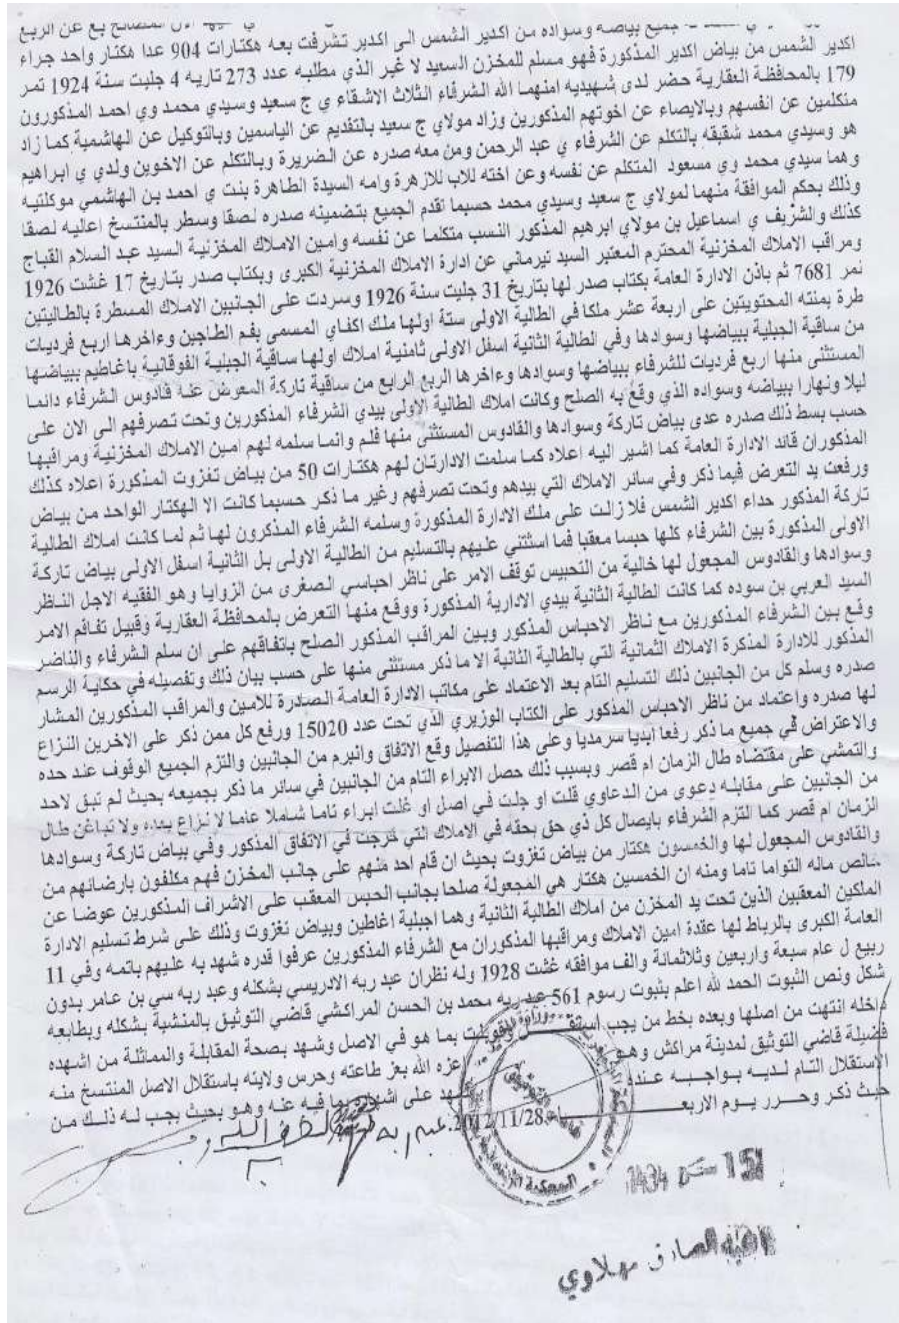 جميع بياضه وسواده من اكدير الشمس الى اكدير تشرفت بعه هكتارات 904 عدا هكتار واحد جراء
اكدير الشمس من بياض اكدير المذكورة فهو مسلم للمخزن السعيد لا غير الذي مطلبه عدد 273 تاريه 4 جليت سنة 1924 تمر
179 بالمحافظة العقارية حضر لدى شهيديه امنهما الله الشرفاء الثلاث الاشقاء ي ج سعيد وسيدي محمد وي احمد المذكورون
متكلمين عن انفسهم وبالايصاء عن اخوتهم المذكورين وزاد مولاي ج سعيد بالتقديم عن الياسمين وبالتوكيل عن الهاشمية كما زاد
هو وسيدي محمد شقيقه بالتكلم عن الشرفاء ي عبد الرحمن ومن معه صدره عن الضريرة وبالتكلم عن الاخوين ولدي ي ابراهيم
وهما سيدي محمد وي مسعود المتكلم عن نفسه وعن اخته للاب للازهرة وامه السيدة الطاهرة بنت ي احمد بن الهاشمي موكلتيه
وذلك بحكم الموافقة منهما لمولاي ج سعيد وسيدي محمد حسبما تقدم الجميع بتضمينه صدره لصقا وسطر بالمنتسخ اعاليه لصقا
كذلك والشريف ي اسماعيل بن مولاي ابرهيم المذكور النسب متكلما عن نفسه وامين الاملاك المخزنية السيد عبد السلام القباج
ومراقب الاملاك المخزنية المحترم المعتبر السيد تيرماني عن ادارة الاملاك المخزنية الكبرى وبكتاب صدر بتاريخ 17 غشت 1926
نمر 7681 ثم باذن الادارة العامة بكتاب صدر لها بتاريخ 31 جليت سنة 1926 وسردت على الجانبين الاملاك المسطرة بالطاليتين
طرة يمنته المحتويتين على اربعة عشر ملكا في الطالية الاولى ستة اولها ملك اكفاي المسمى بفم الطاجين وءاخرها اربع فرديات
من ساقية الجبلية ببياضها وسوادها وفي الطالية الثانية اسفل الاولى ثامنية املاك اولها ساقية الجبلية الفوقانية باغاطيم ببياضها
المستثنى منها اربع فرديات للشرفاء ببياضها وسوادها وءاخرها الربع الرابع من ساقية تاركة المعرض عنه قادوس الشرفاء دائما
ليلا ونهارا ببياضه وسواده الذي وقع به الصلح وكانت املاك الطالية الاولى بيدي الشرفاء المذكورين وتحت تصرفهم الى الان على
حسب بسط ذلك صدره عدى بياض تاركة وسوادها والقادوس المستثنى منها فلم وانما سلمه لهم امين الاملاك المخزنية ومراقبها
المذكوران قائد الادارة العامة كما اشير اليه اعلاه كما سلمت الادارتان لهم هكتارات 50 من بياض تغزوت المذكورة اعلاه كذلك
ورفعت يد التعرض فيما ذكر وفي سائر الاملاك التي بيدهم وتحت تصرفهم وغير ما ذكر حسبما كانت الا الهكتار الواحد من بياض
تاركة المذكور حداء اكدير الشمس فلا زالت على ملك الادارة المذكورة وسلمه الشرفاء المذكرون لها ثم لما كانت املاك الطالية
الاولى المذكورة بين الشرفاء كلها حبسا معقبا فما اسثتني عليهم بالتسليم من الطالية الاولى بل الثانية اسفل الاولى بياض تاركة
وسوادها والقادوس المجعول لها خالية من التحبيس توقف الامر على ناظر احباسي الصغرى من الزوايا وهو الفقيه الاجل الناظر
السيد العربي بن سوده كما كانت الطالية الثانية بيدي الادارية المذكورة ووقع منها التعرض بالمحافظة العقارية وقبيل تفاقم الامر
وقع بين الشرفاء المذكورين مع ناظر الاحباس المذكور وبين المراقب المذكور الصلح باتفاقهم على ان سلم الشرفاء والناضر
المذكور للادارة المذكرة الاملاك الثمانية التي بالطالية الثانية الا ما ذكر مستثنى منها على حسب بيان ذلك وتفصيله في حكاية الرسم
صدره وسلم كل من الجانبين ذلك التسليم التام بعد الاعتماد على مكاتب الادارة العامة الصادرة للامين والمراقب المذكورين المشار
لها صدره واعتماد من ناظر الاحباس المذكور على الكتاب الوزيري الذي تحت عدد 15020 ورفع كل ممن ذكر على الاخرين النزاع
والاعتراض في جميع ما ذكر رفعا ابديا سرمديا وعلى هذا التفصيل وقع الاتفاق وانبرم من الجانبين والتزم الجميع الوقوف عند حده
والتمشي على مقتضاه طال الزمان ام قصر وبسبب ذلك حصل الابراء التام من الجانبين في سائر ما ذكر بجميعه بحيث لم تبق لاحد
من الجانبين على مقابله دعوى من الدعاوي قلت او جلت في اصل او غلت ابراء تاما شاملا عاما لا نزاع بعده ولا تباغن طال
الزمان ام قصر كما التزم الشرفاء بايصال كل ذي حق بحقه في الاملاك التي خرجت في الاتفاق المذكور وفي بياض تاركة وسوادها
والقادوس المجعول لها والخمسون هكتار من بياض تغزوت بحيث ان قام احد منهم على جانب المخزن فهم مكلفون بارضائهم من
خالص ماله التواما تاما ومنه ان الخمسين هكتار هي المجعولة صلحا بجانب الحبس المعقب على الاشراف المذكورين عوضا عن
الملكين المعقبين الذين تحت يد المخزن من املاك الطالية الثانية وهما اجبلية اغاطين وبياض تغزوت وذلك على شرط تسليم الادارة
العامة الكبرى بالرباط لها عقدة امين الاملاك ومراقبها المذكوران مع الشرفاء المذكورين عرفوا قدره شهد به عليهم باتمه وفي 11
ربيع ل عام سبعة واربعين وثلاثمائة والف موافقه غشت 1928 وله نظران عبد ربه الادريسي بشكله وعبد ربه سي بن عامر بدون
شكل ونص الثبوت الحمد لله اعلم بثبوت رسوم 561 عبد ربه محمد بن الحسن المراكشي قاضي التوثيق بالمنشية بشكله وبطابعه
داخله انتهت من اصلها وبعده بخط من يجب وقوبلت بما هو في الاصل وشهد بصحة المقابلة والمماثلة من اشهده
فضيلة قاضي التوثيق لمدينة مراكش وهو اعزه الله بعز طاعته وحرس ولايته باستقلال الاصل المنتسخ منه
الاستقلال التام لديه بواجبه عنده شهد على اشهاده بما فيه عنه وهو بحيث يجب له ذلك من
حيث ذكر وحرر يوم الاربعاء 2012/11/28. عبد ربه
15 1434
الصادق مهلاوي